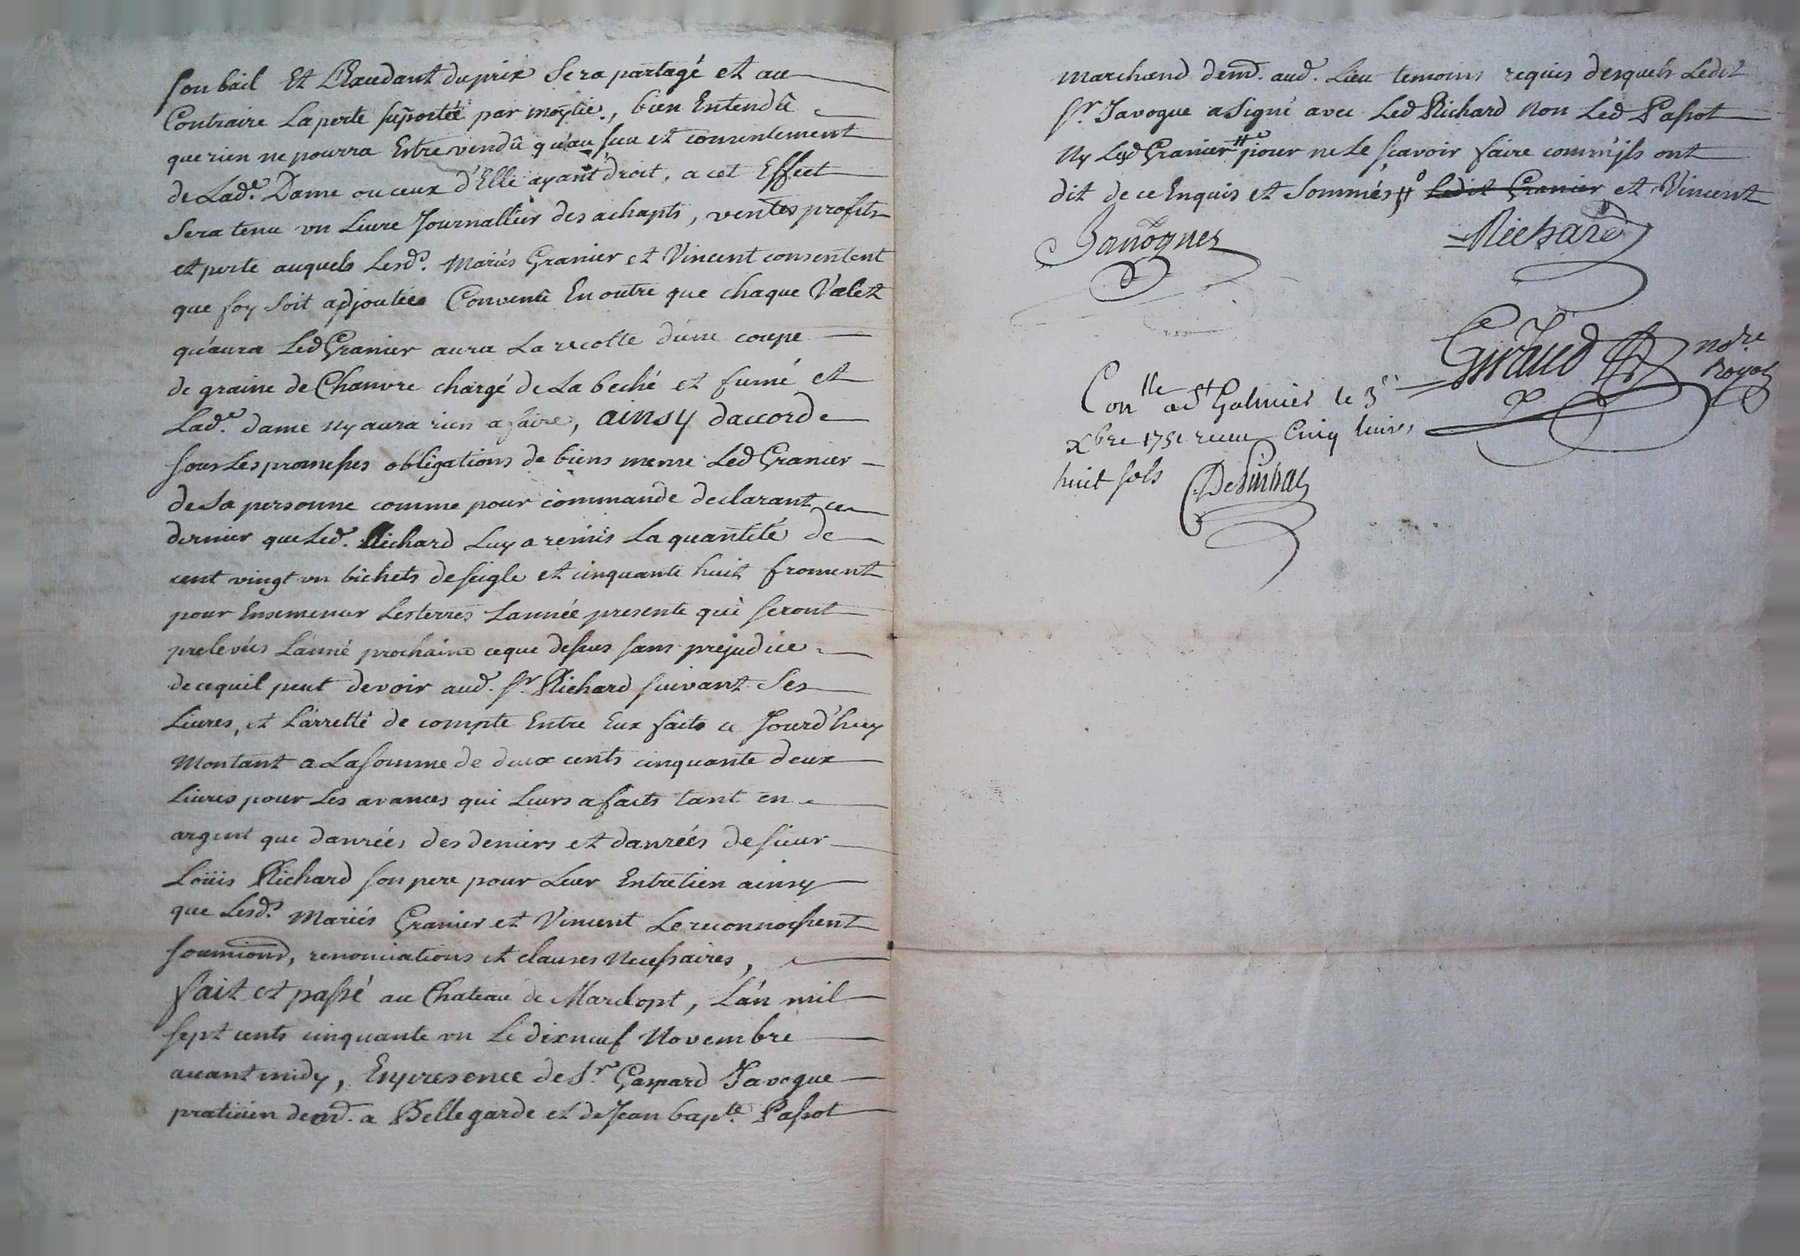 son bail Et L'Exaudant du prix Sera partagé et au
Contraire La perte suportée par moytie, bien Entendû
que rien ne pourra Estre vendû qu'au sceu et consentement
de Lad.e Dame ou ceux d'Elle ayant droit, a cet Effect
Sera tenu un Livre Journallier des achapts, ventes profits
et perte auquels Lesd.s Mariés Granier et Vincent consentent
que foy soit adjoutée Convenû En outre que chaque Valet
qu'aura Led Granier aura La recolte d'une coupe
de graine de Chanvre chargé de La beché et fumé et
Lad.e dame ny aura rien a faire, ainsy d'accorde
sous Les promesses obligations de biens meme Led Granier
de sa personne comme pour commande declarant ce
dernier que Led. Richard Luy a remis La quantité de
cent vingt un bichets de seigle et cinquante huit froment
pour Ensemencer Les terres L'année presente qui seront
prelevés L'anné prochaine ce que dessus sans prejudice
de ce quil peut devoir aud. Sr Richard suivant Ses
Livres, et L'arretté de compte Entre Eux faits ce Jourd'huy
Montant a La somme de deux cents cinquante deux
Livres pour Les avances qui Leurs a faits tant en
argent que danrées des deniers et danrées de sieur
Loüis Richard son pere pour Leur Entretien ainsy
que Lesd.s Mariés Granier et Vincent Le reconnoissent
soumions, renonciations et clauses Necessaires,
fait et passé au Chateau de Marclopt, L'an mil
sept cents cinquante un Le dixneuf Novembre
avant midy, En presence de Sr. Gaspard Javogue
praticien dem.t a Bellegarde et de Jean bap.te Passot
marchand dem.t aud. Lieu temoins requis desquels Ledit
Sr. Javogue a signé avec Led Richard Non Led Passot
Ny Led Granier pour ne Le sçavoir faire comm'jls ont
dit de ce Enquis et Sommés Ledit Granier et Vincent
Javogues
Richard
Giraud no.re Royal
Con.lle a St Galmier le 3e
Xbre 1751 receu Cinq livres
huit sols